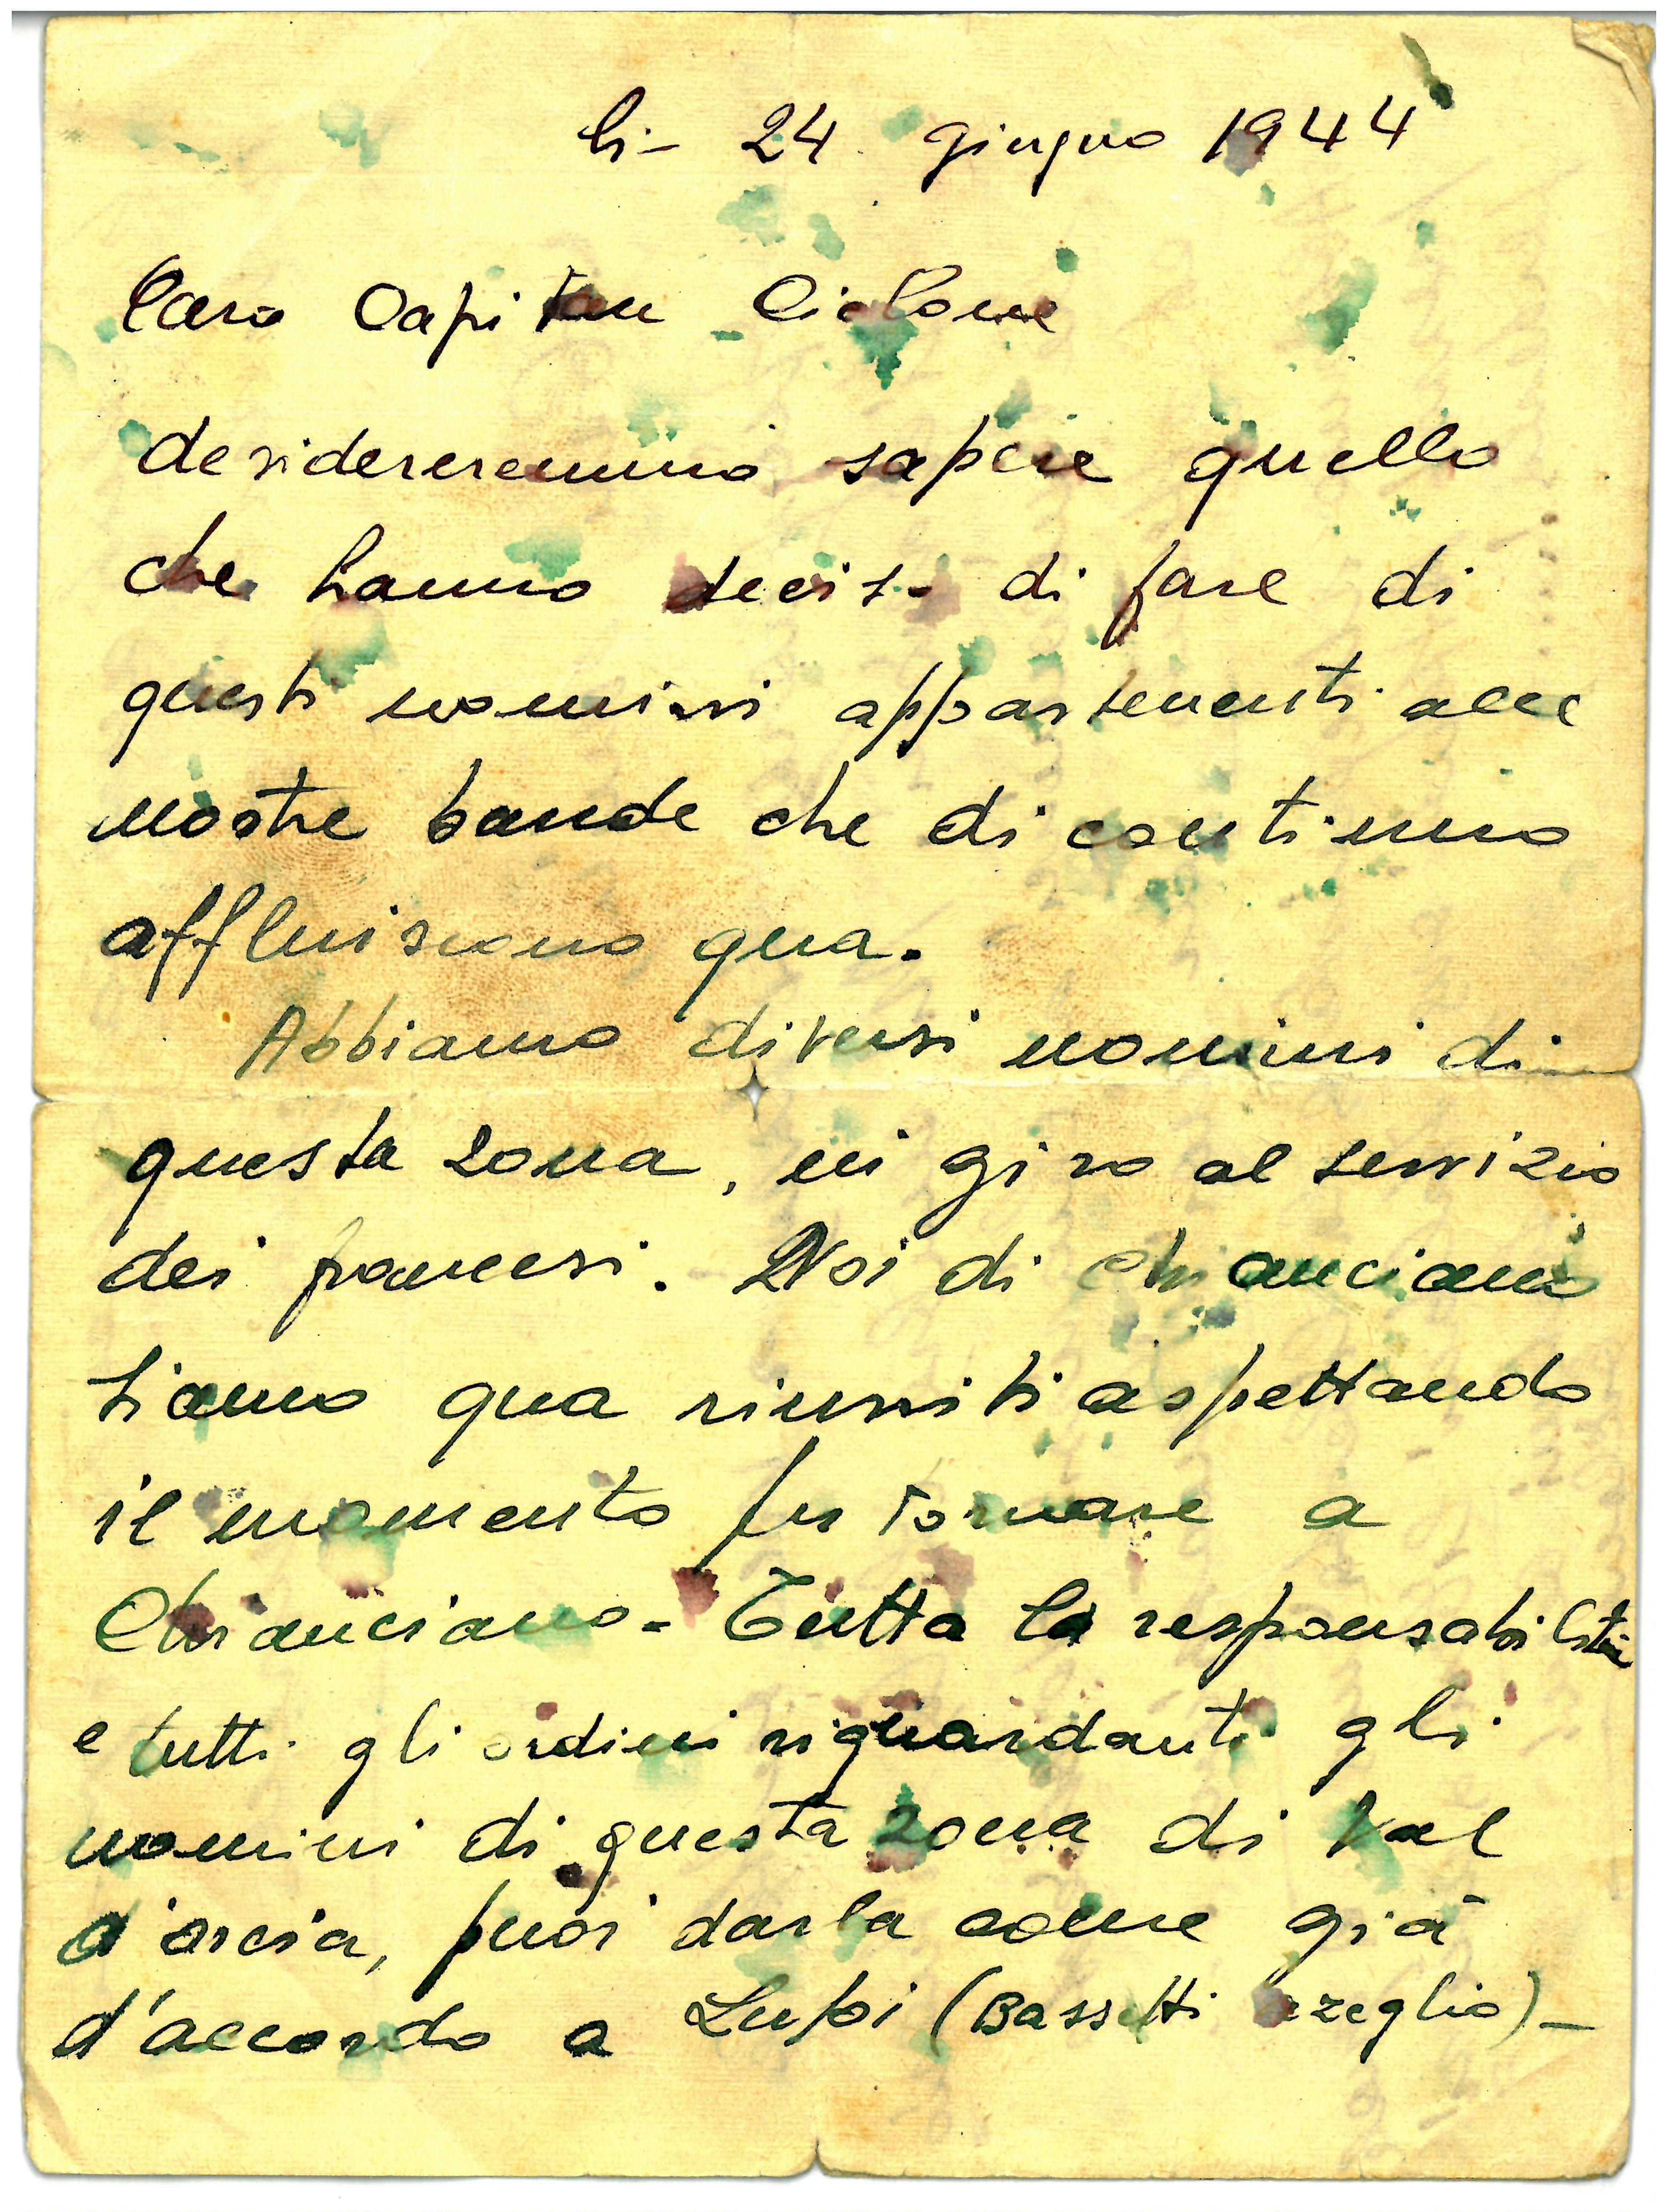 li- 24 giugno 1944
Caro Capitan Ciclone
desidereremmo sapere quello
che hanno deciso di fare di
questi uomini appartenenti alle
nostre bande che di continuo
affluiscono qua.
Abbiamo diversi uomini di
questa zona, in giro al servizio
dei francesi. Noi di Chianciano
siamo qua riuniti aspettando
il momento per tornare a
Chianciano- Tutta la responsabilità
e tutti gli ordini riguardanti gli
uomini di questa zona di Val
d'orcia, puoi darla come già
d'accordo a Lupi (Bassetti azeglio)-